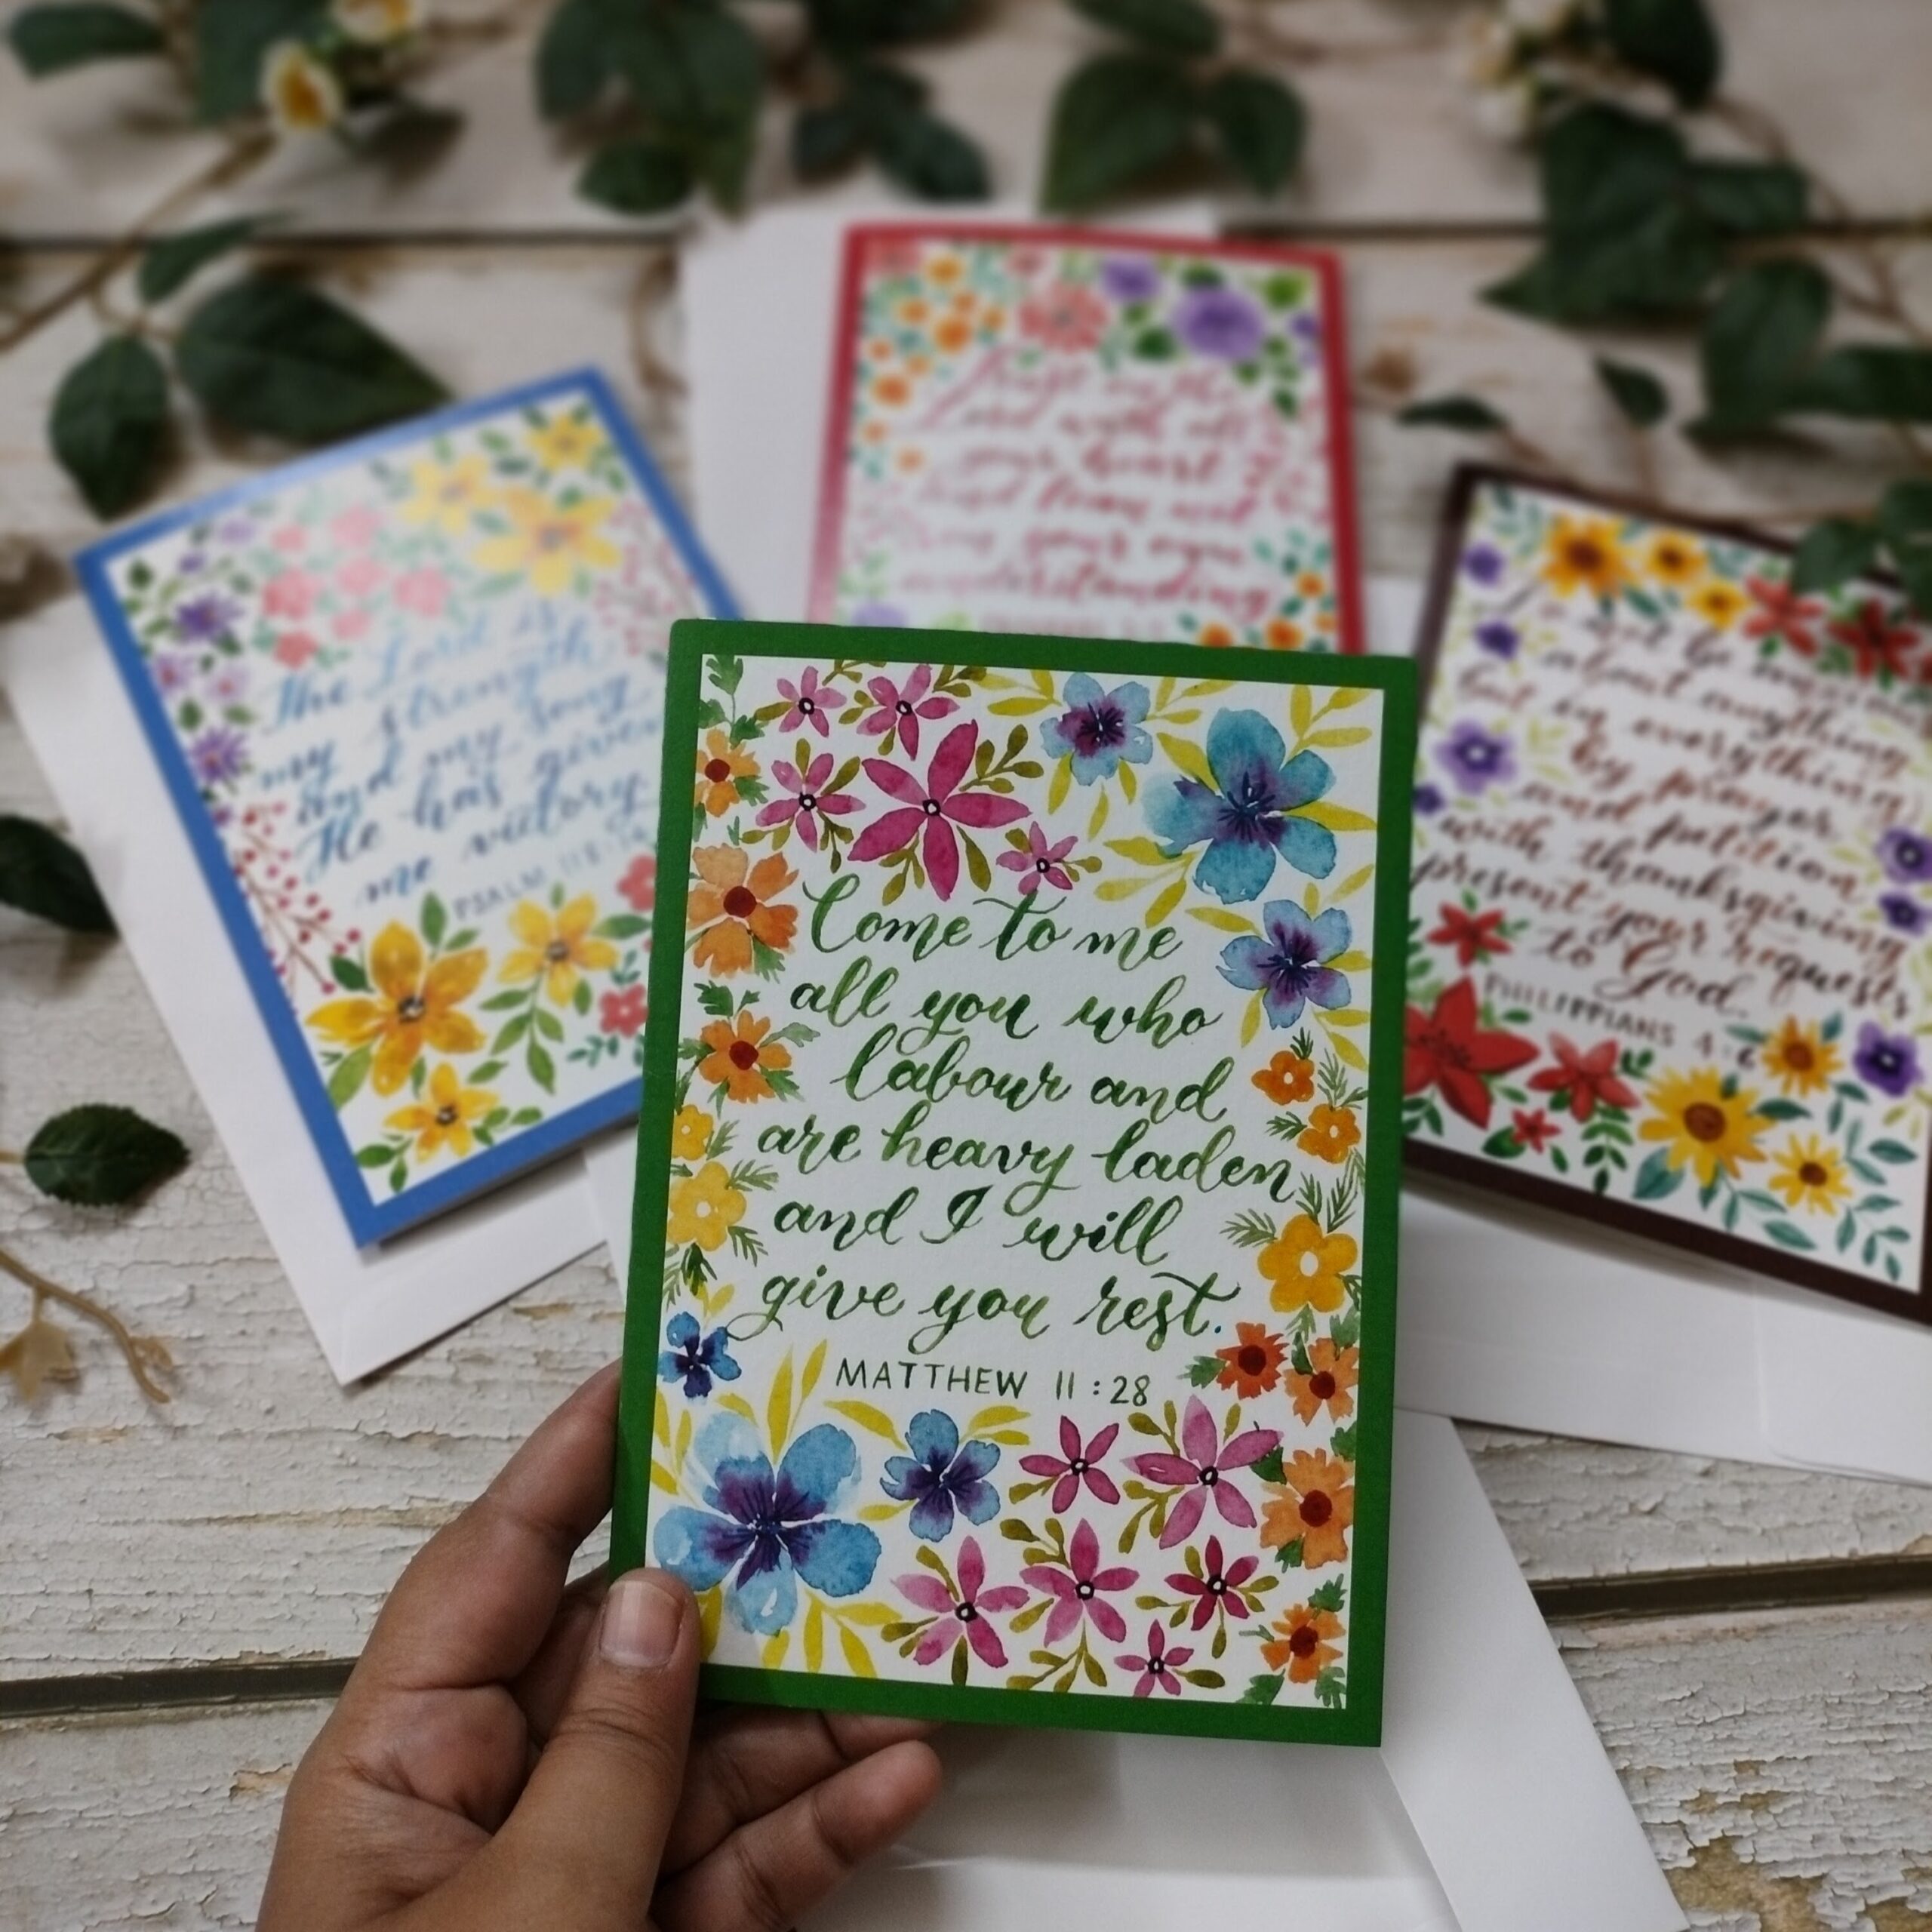 Trust in the
Lord with all
your heart
and lean not
on your own
understanding
The Lord is
my strength
and my song
He has given
me victory
PSALM 118:14
Do not be anxious
about anything
but in everything
by prayer
and petition
with thanksgiving
present your requests
to God.
PHILIPPIANS 4:6
Come to me
all you who
labour and
are heavy laden
and I will
give you rest.
MATTHEW 11:28